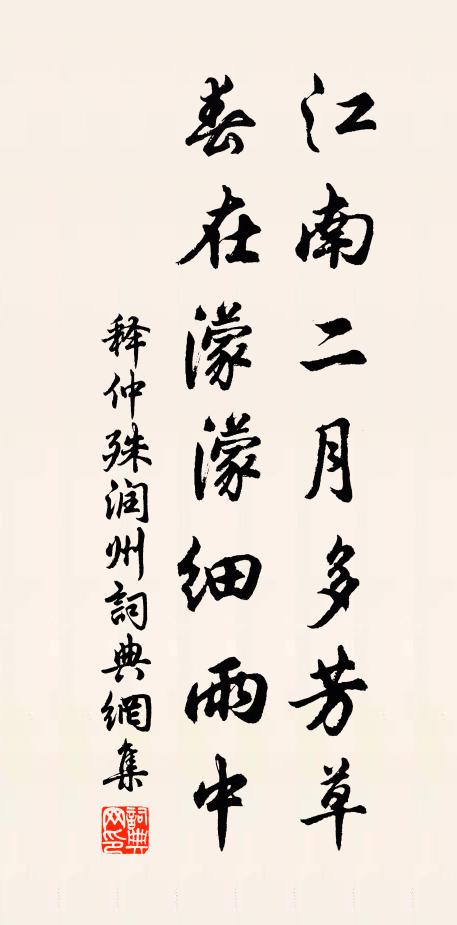 江南二月多芳草
春在濛濛細雨中
释仲殊润州詞典網集
詞典网印